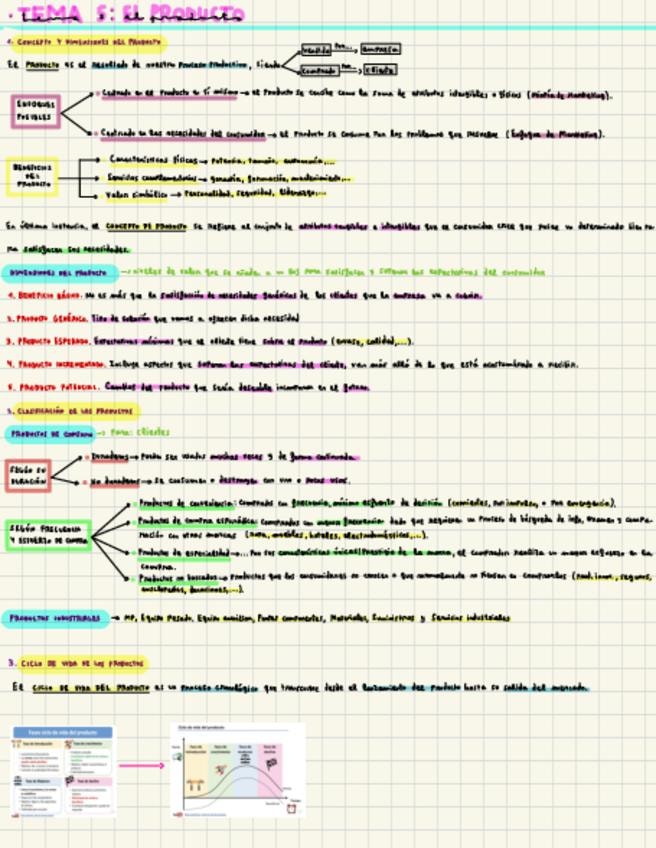 · TEMA 5: EL PRODUCTO
1. CONCEPTO Y DIMENSIONES DEL PRODUCTO
El PRODUCTO es el resultado de nuestro proceso productivo, siendo
vendido por... empresa
comprado por... cliente
ENFOQUES POSIBLES
Centrado en el producto en sí mismo → el producto se concibe como la suma de atributos intangibles o físicos (Miopía de Marketing).
Centrado en las necesidades del consumidor → el producto se consume por los problemas que resuelve (Enfoque de Marketing).
BENEFICIOS DEL PRODUCTO
Características físicas → potencia, tamaño, autonomía,...
Servicios complementarios → garantía, financiación, mantenimiento,...
Valor simbólico → personalidad, seguridad, liderazgo...
En última instancia, el CONCEPTO DE PRODUCTO se refiere al conjunto de atributos tangibles e intangibles que el consumidor cree que posee un determinado bien pa-
ra satisfacer sus necesidades.
DIMENSIONES DEL PRODUCTO → niveles de valor que se añade a un bien para satisfacer y superar las expectativas del consumidor
1. BENEFICIO BÁSICO. No es más que la satisfacción de necesidades genéricas de los clientes que la empresa va a cubrir.
2. PRODUCTO GENÉRICO. Tipo de solución que vamos a ofrecer a dicha necesidad
3. PRODUCTO ESPERADO. Expectativas mínimas que el cliente tiene sobre el producto (envase, calidad,...).
4. PRODUCTO INCREMENTADO. Incluye aspectos que superan las expectativas del cliente, van más allá de lo que está acostumbrado a recibir.
5. PRODUCTO POTENCIAL. Cambios del producto que sería deseable incorporar en el futuro.
2. CLASIFICACIÓN DE LOS PRODUCTOS
PRODUCTOS DE CONSUMO → Para: clientes
SEGÚN SU DURACIÓN
Duraderos → Pueden ser usados muchas veces y de forma continuada.
No duraderos → se consumen o destruyen con uno o pocos usos.
SEGÚN FRECUENCIA Y ESFUERZO DE COMPRA
Productos de conveniencia: comprados con frecuencia, mínimo esfuerzo de decisión (corrientes, por impulso, o por emergencia).
Productos de compra esporádica: comprados con menor frecuencia dado que requiere un proceso de búsqueda de info, examen y compa-
ración con otras marcas (ropa, muebles, hoteles, electrodomésticos,...).
Productos de especialidad → ...Por sus características únicas/prestigio de la marca, el comprador realiza un mayor esfuerzo en la
compra.
Productos no buscados → Productos que los consumidores no conocen o que normalmente no piensan en comprarlos (seguros,
enciclopedias, donaciones,...).
PRODUCTOS INDUSTRIALES → MP, Equipo pesado, Equipo auxiliar, Partes componentes, Materiales, Suministros y Servicios industriales
3. CICLO DE VIDA DE LOS PRODUCTOS
El CICLO DE VIDA DEL PRODUCTO es un proceso cronológico que transcurre desde el lanzamiento del producto hasta su salida del mercado.
Fases ciclo de vida del producto
Fase de Introducción
Fase de crecimiento
Fase de Madurez
Fase de declive
Ciclo de vida del producto
Fase de introducción
Fase de crecimiento
Fase de madurez
Fase de declive